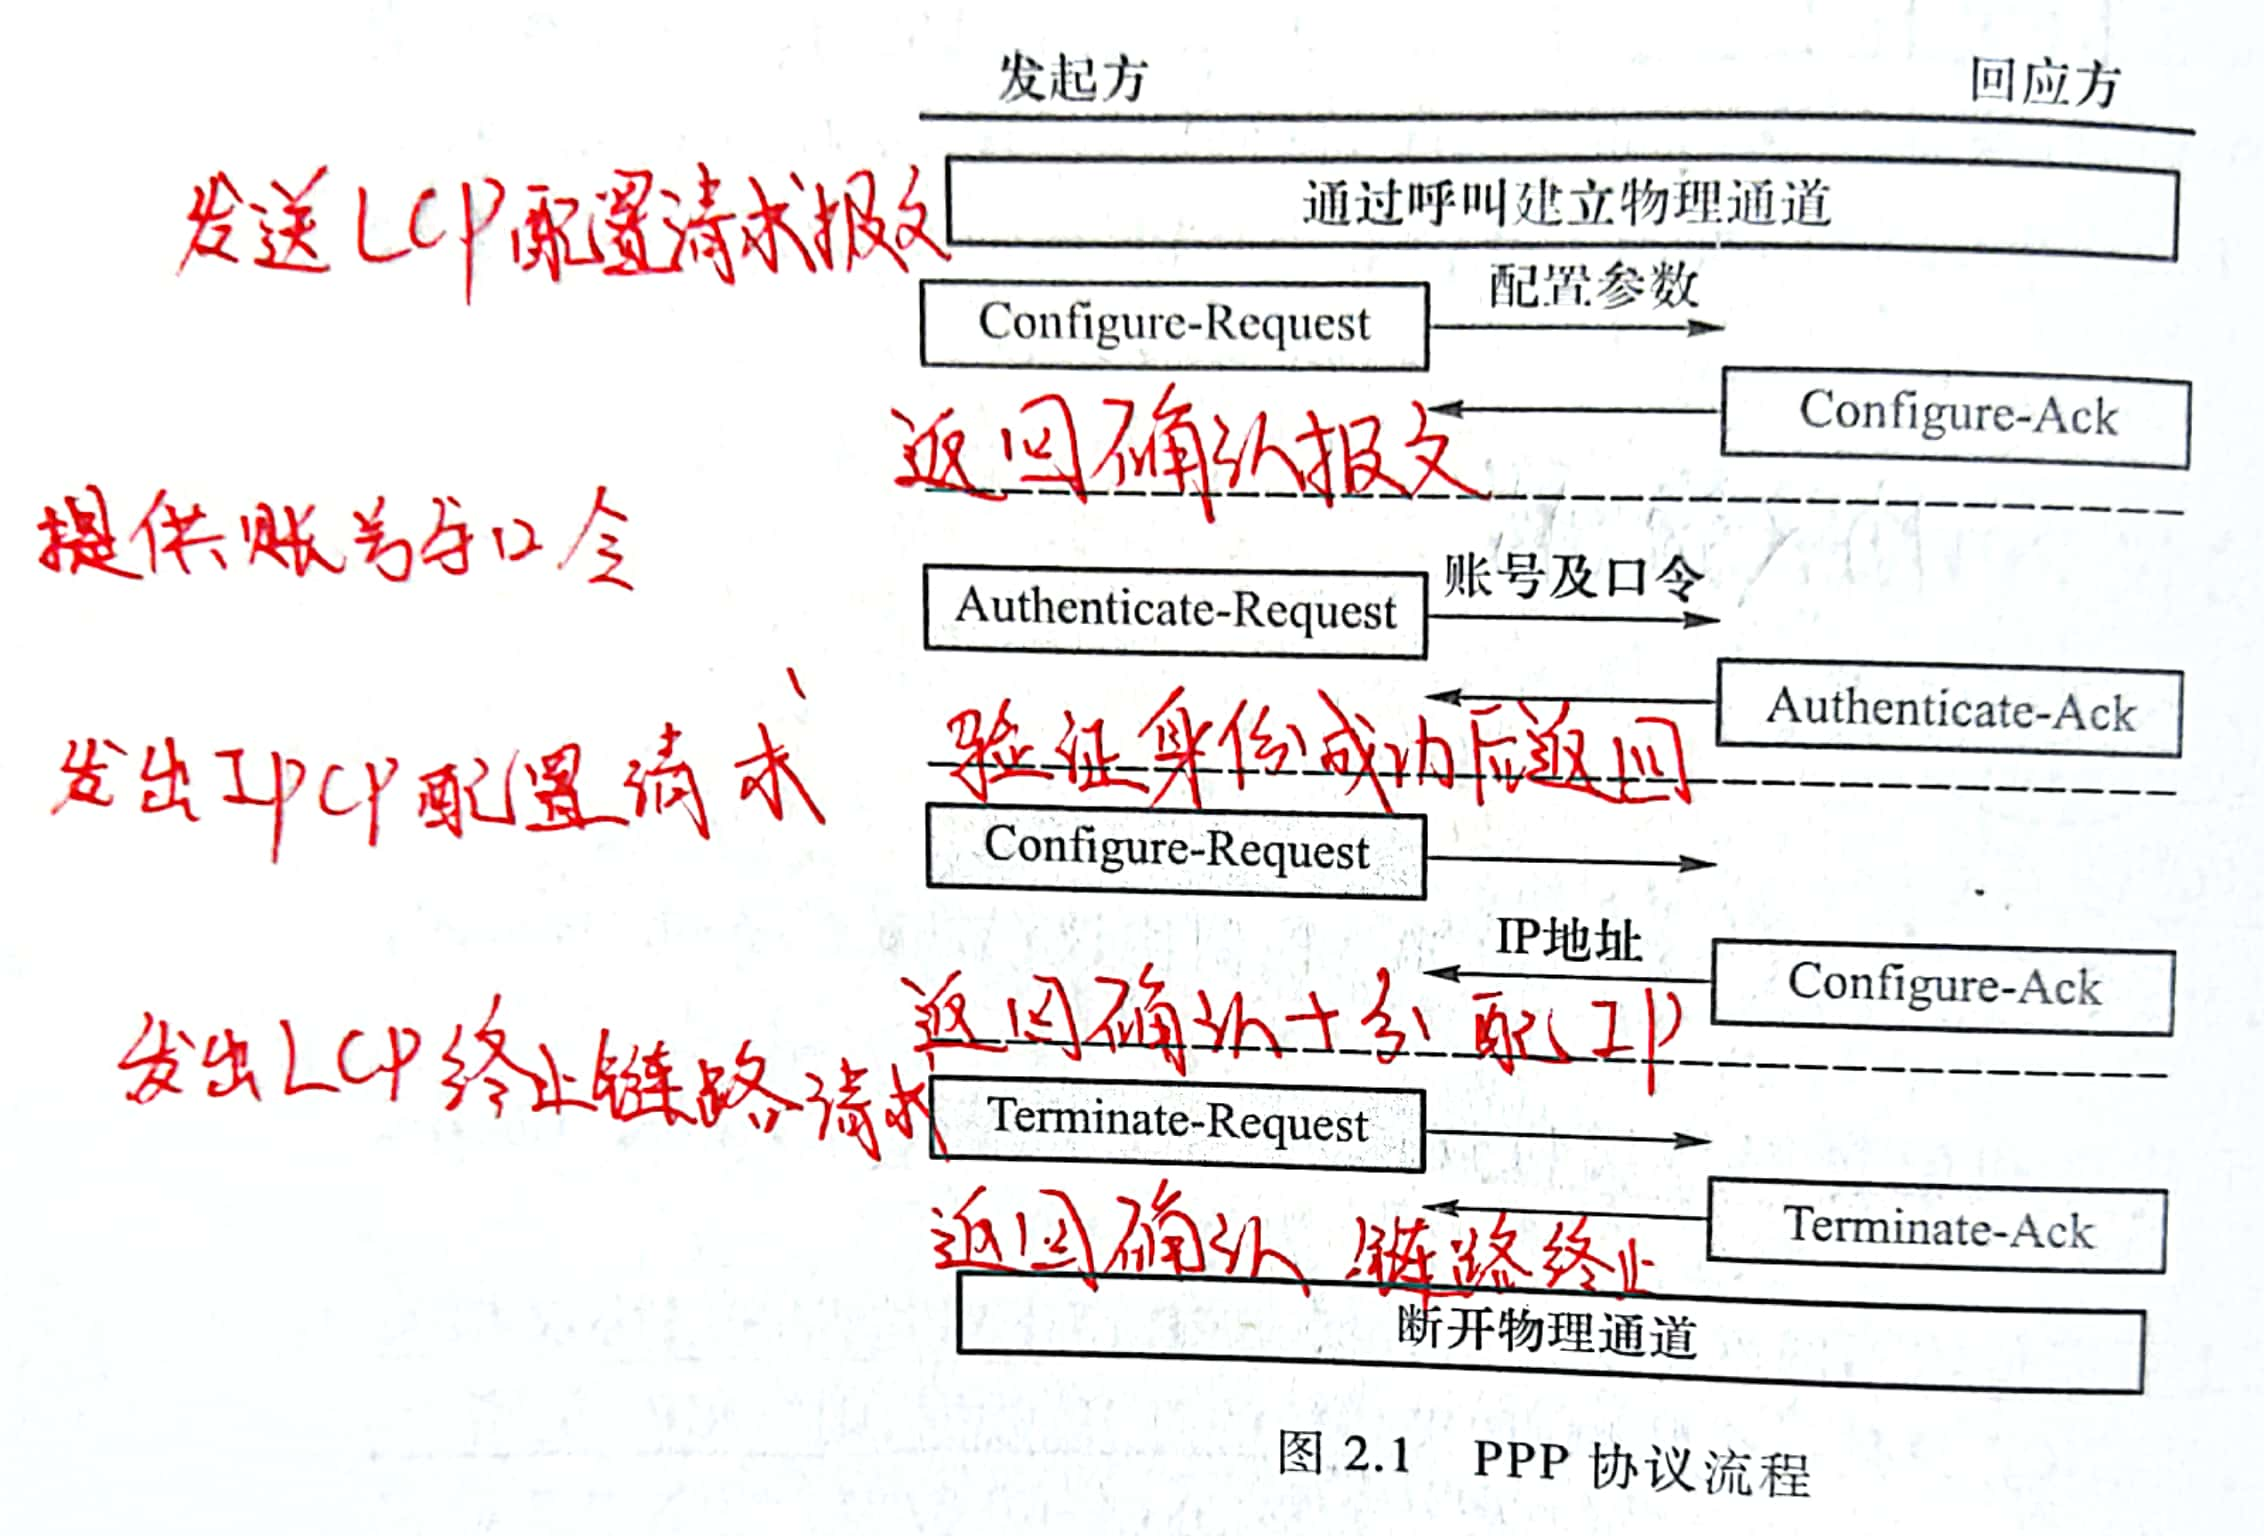 发起方 回应方
通过呼叫建立物理通道
发送LCP配置请求报文
配置参数
Configure-Request
Configure-Ack
返回确认报文
提供账号与口令
账号及口令
Authenticate-Request
Authenticate-Ack
验证身份成功后返回
发出IPCP配置请求
Configure-Request
IP地址
Configure-Ack
返回确认+分配IP
发出LCP终止链路请求
Terminate-Request
Terminate-Ack
返回确认 链路终止
断开物理通道
图 2.1 PPP 协议流程